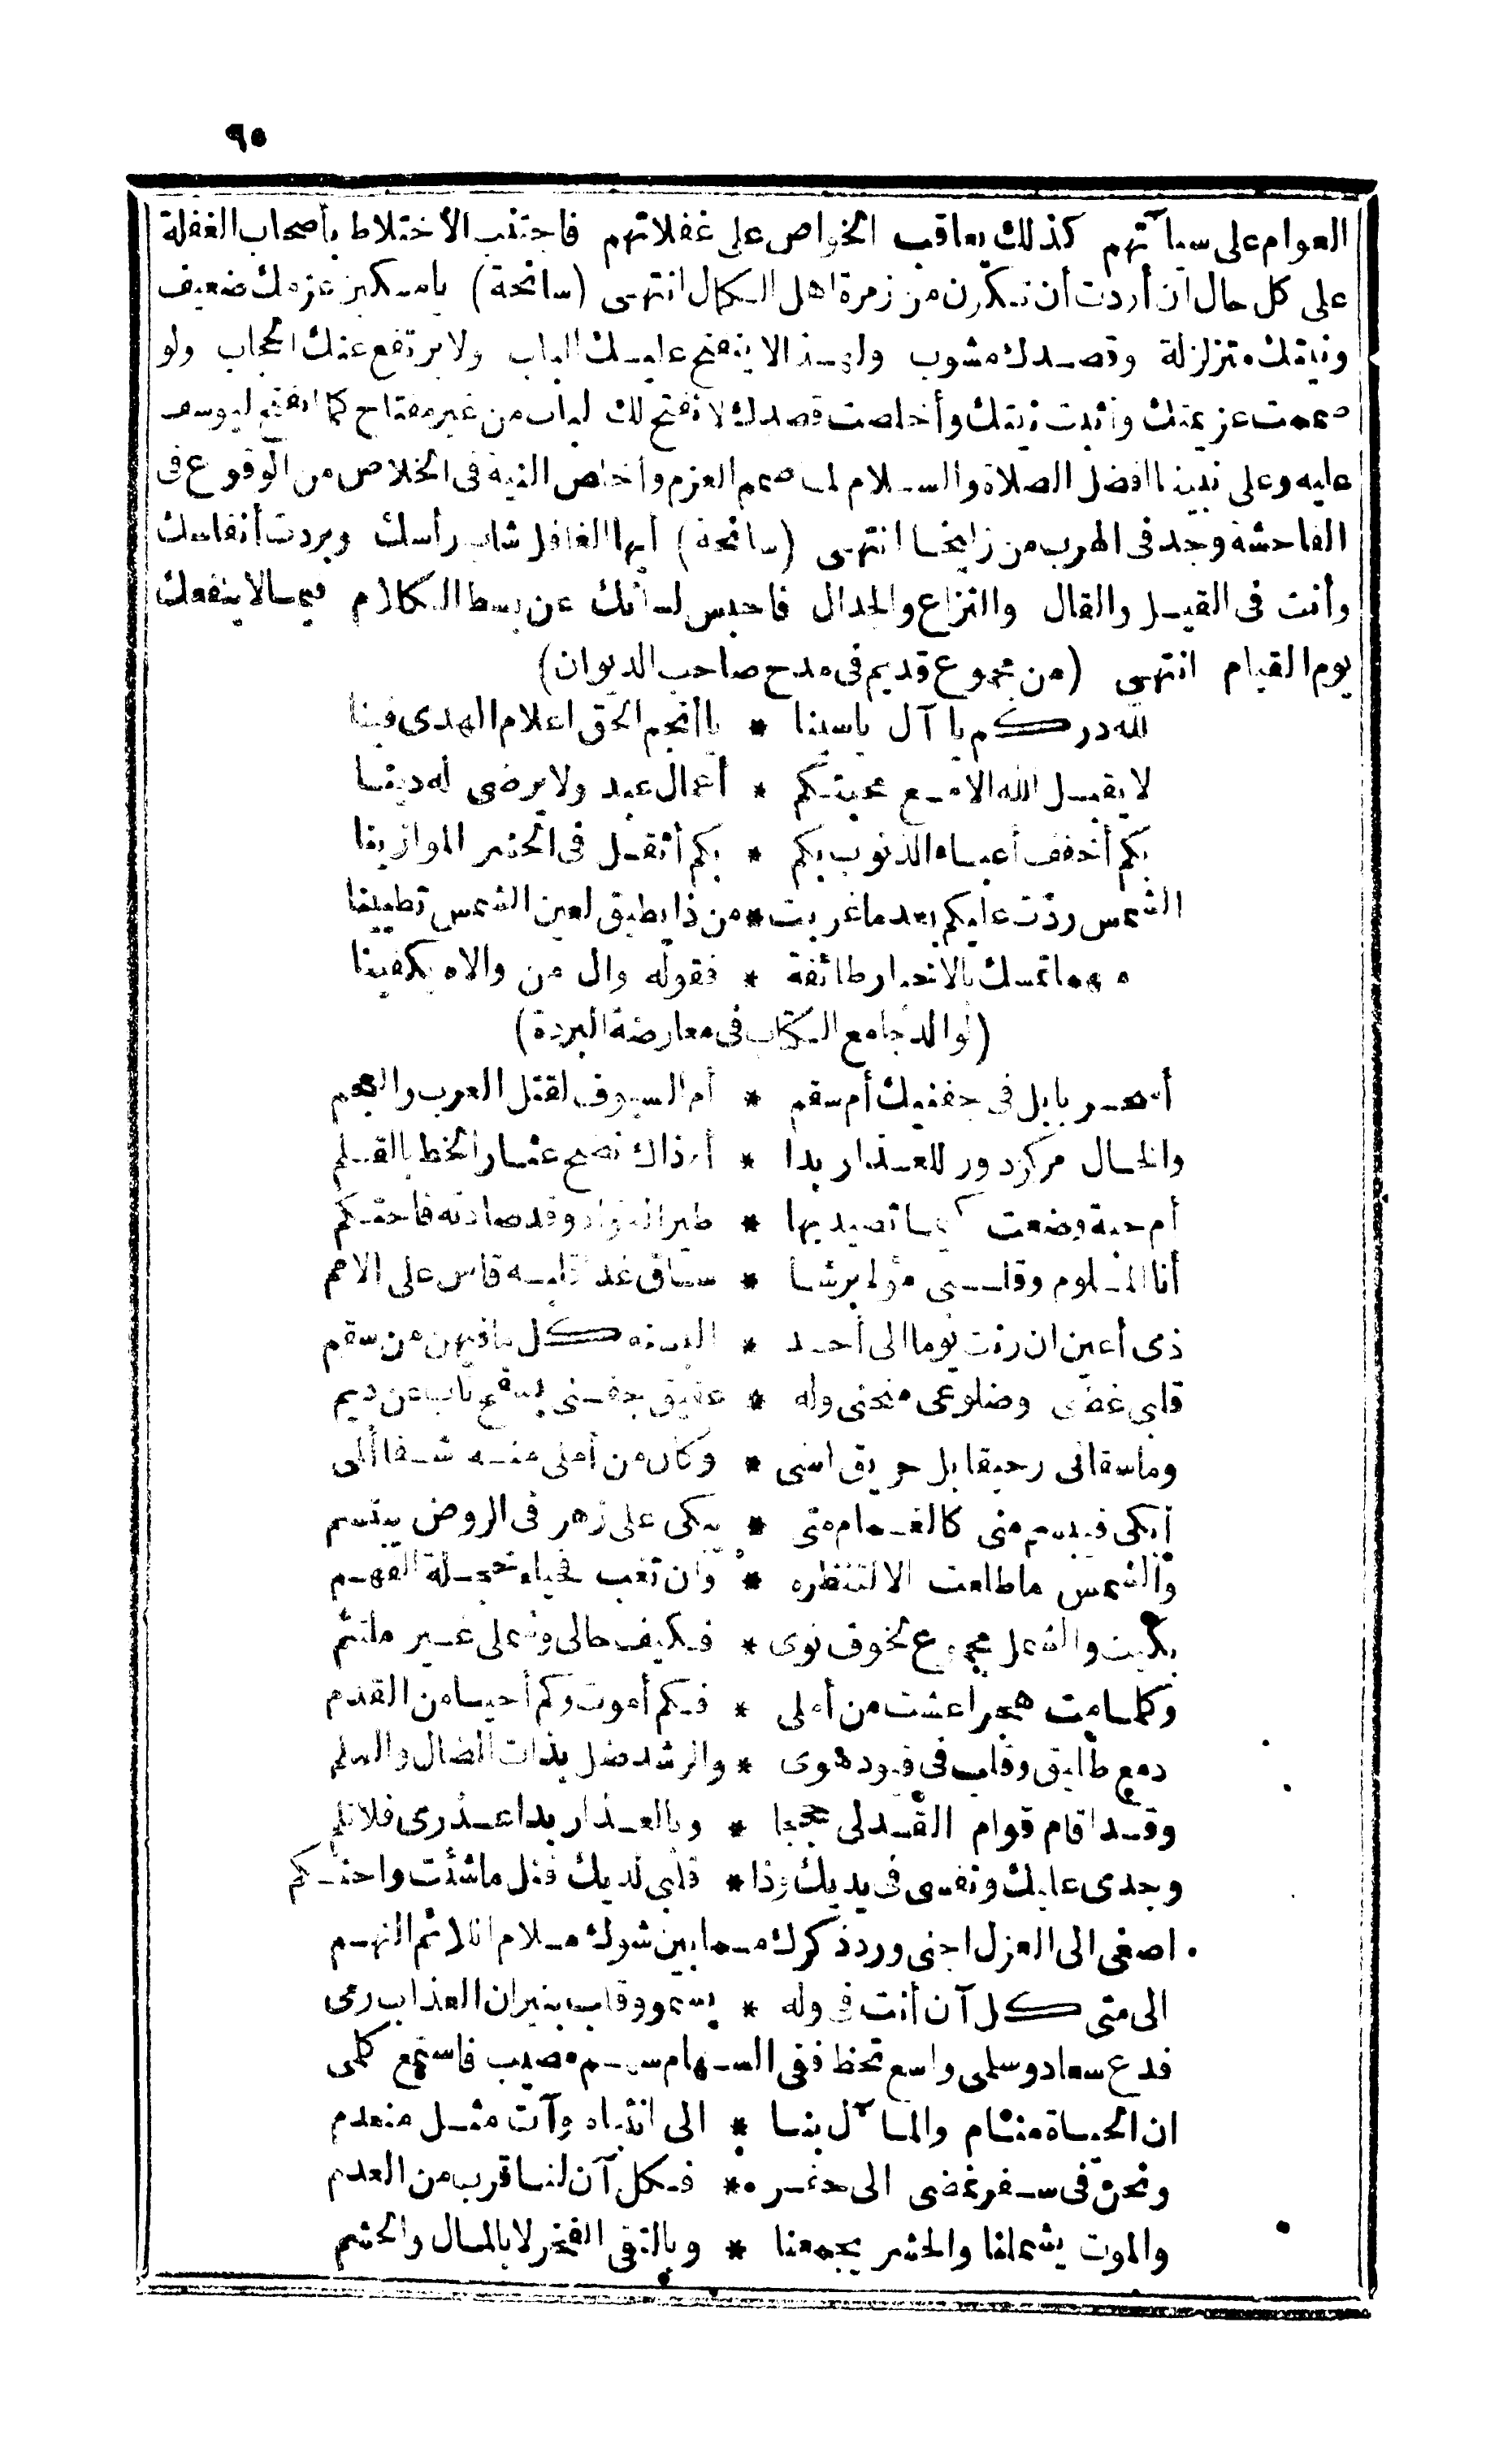 ٩٥
العوام على سيآتهم كذلك يعاقب الخواص على غفلاتهم فاجتنب الأختلاط بأصحاب الغفلة
على كل حال ان أردت أن تكون من زمرة اهل الكمال انتهى (سانحة) يامسكين عزمك ضعيف
ونيتك متزلزلة وقصدك مشوب ولهذا لا ينفتح عليك الباب ولا يرتفع عنك الحجاب ولو
صممت عزيمتك وأثبت نيتك وأخلصت قصدك لانفتح لك الباب من غير مفتاح كما انفتح ليوسف
عليه وعلى نبينا افضل الصلاة والسلام لما صمم العزم وأخلص النية فى الخلاص من الوقوع فى
الفاحشة وجد فى الهرب من زليخا انتهى (سانحة) أيها الغافل شاب رأسك وبردت أنفاسك
وأنت فى القيل والقال والنزاع والجدال فاحبس لسانك عن بسط الكلام فيما لا ينفعك
يوم القيام انتهى (من مجموع قديم فى مدح صاحب الديوان)
لله دركم يا آل ياسينا * يا أنجم الحق اعلام الهدى فينا
لا يقبل الله الا مع محبتكم * أعمال عبد ولا يرضى له دينا
بكم أخفف أعباء الذنوب بكم * بكم أثقل فى الحشر الموازينا
الشمس ردت عليكم بعد ما غربت * من ذا يطيق لعين الشمس تطيينا
مهما تمسك بالاخبار طائفة * فقوله وال من والاه يكفينا
(لوالد جامع الكتاب فى معارضة البردة)
أسحر بابل فى جفنيك أم سقم * أم السيوف لقتل العرب والعجم
والخال مركز دور للعذار بدا * أم ذاك نضح عثار الخط بالقلم
أم حبة وضعت كيما تصيد بها * طير الفؤاد وقد صادته فاحتكم
أنا الملوم وقلبى مولع برشا * ساق غدا قلبه قاس على الامم
ذى أعين ان رنت يوما الى أحد * البسنه كل ما فيهن من سقم
قلبى غضى وضلوعى منحنى وله * عقيق جفنى بسفح ناب عن ديم
وما سقانى رحيقا بل حريق اسى * وكان من أملى منه شفا ألمى
أبكى فيبسم منى كالغمام متى * يبكى على زهر فى الروض يبتسم
والشمس ما طلعت الا لتنظره * وان تغب فحياء خجلة الفهم
بكيت والشمل مجموع لخوف نوى * فكيف حالى وشملى غير ملتئم
وكلما مت هجرا عشت من أملى * فكم أموت وكم أحيا من القدم
دمع طليق وقلب فى قيود هوى * والرشد ضل بذات الضال والسلم
وقد اقام قوام القد لى حججا * وبالعذار بدا عذرى فلا تلم
وجدى عليك ونفسى فى يديك وذا * قلبى لديك فنل ما شئت واحتكم
اصغى الى العزل اجنى ورد ذكرك من ما بين شوك ملام اللائم النهم
الى متى كل آن أنت فى وله * يسمو وقلب بنيران العذاب رمى
فدع سعاد وسلمى واسع تحظ ففى السهام سهم مصيب فاستمع كلمى
ان الحياة منام والمآل بنا * الى انتباه وآت مثل منعدم
ونحن فى سفر نمضى الى حفر * فكل آن لنا قرب من العدم
والموت يشملنا والحشر يجمعنا * وبالتقى الفخر لا بالمال والحشم